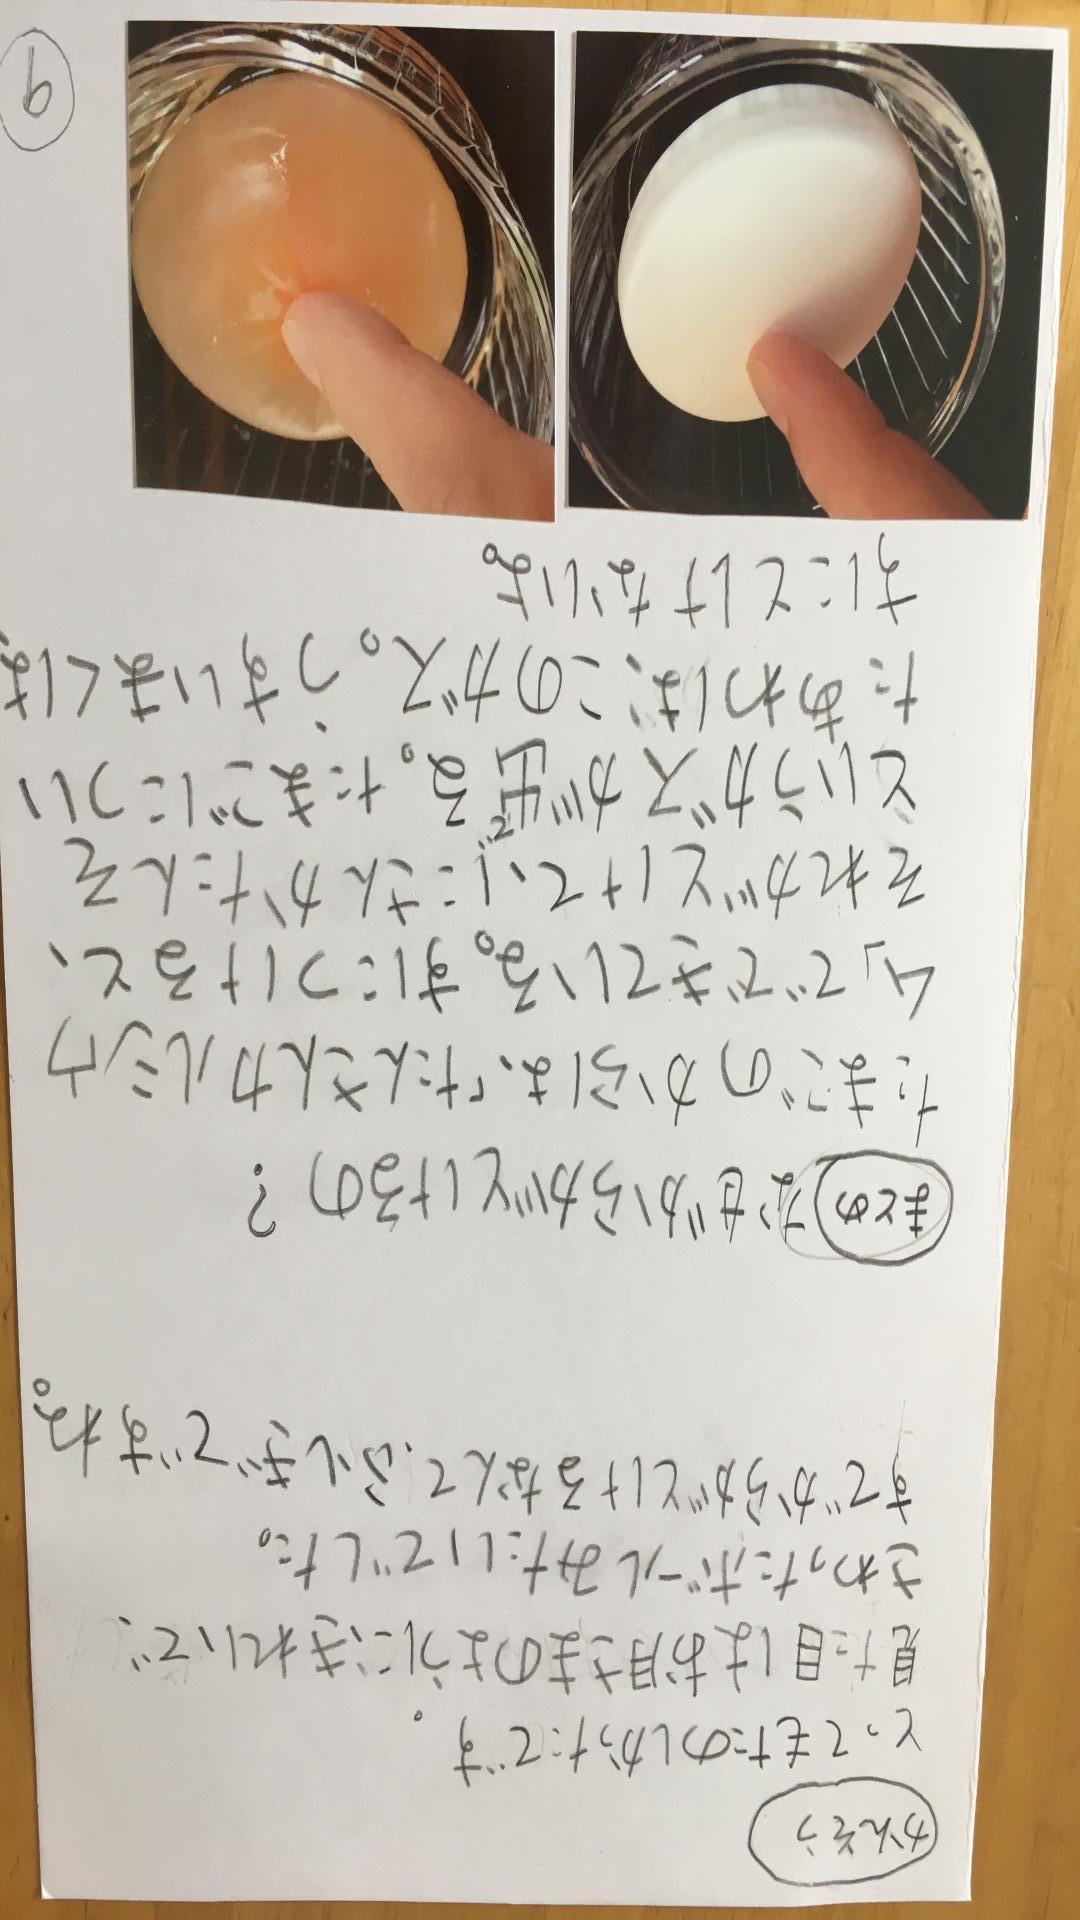 かんそう
とってもたのしかったです。
見た目はお月さまのようにきれいで、
さわったボールみたいでした。
すでからがとけるなんてふしぎですね。
まとめ なぜからがとけるの?
たまごのからは、「たんさんカルシウ
ム」でできている。すにつけると、
それがとけて、にさんかたんそ
というガスが出る。たまごについ
たあわは、このガス。うすいまくは、
すにとけないよ。
6